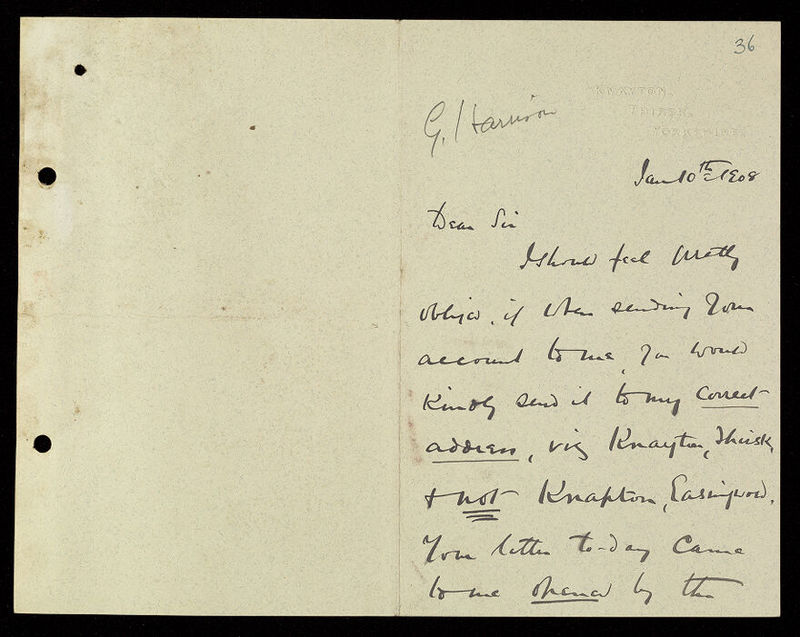 36
KNAYTON,
THIRSK,
YORKSHIRE.
G. Harrison
Jan 10th 1908
Dear Sir
I should feel greatly
obliged, if when sending your
account to me, you would
kindly send it to my correct
address, viz Knayton, Thirsk,
& not Knapton, Easingwold.
Your letter to-day came
to me opened by the